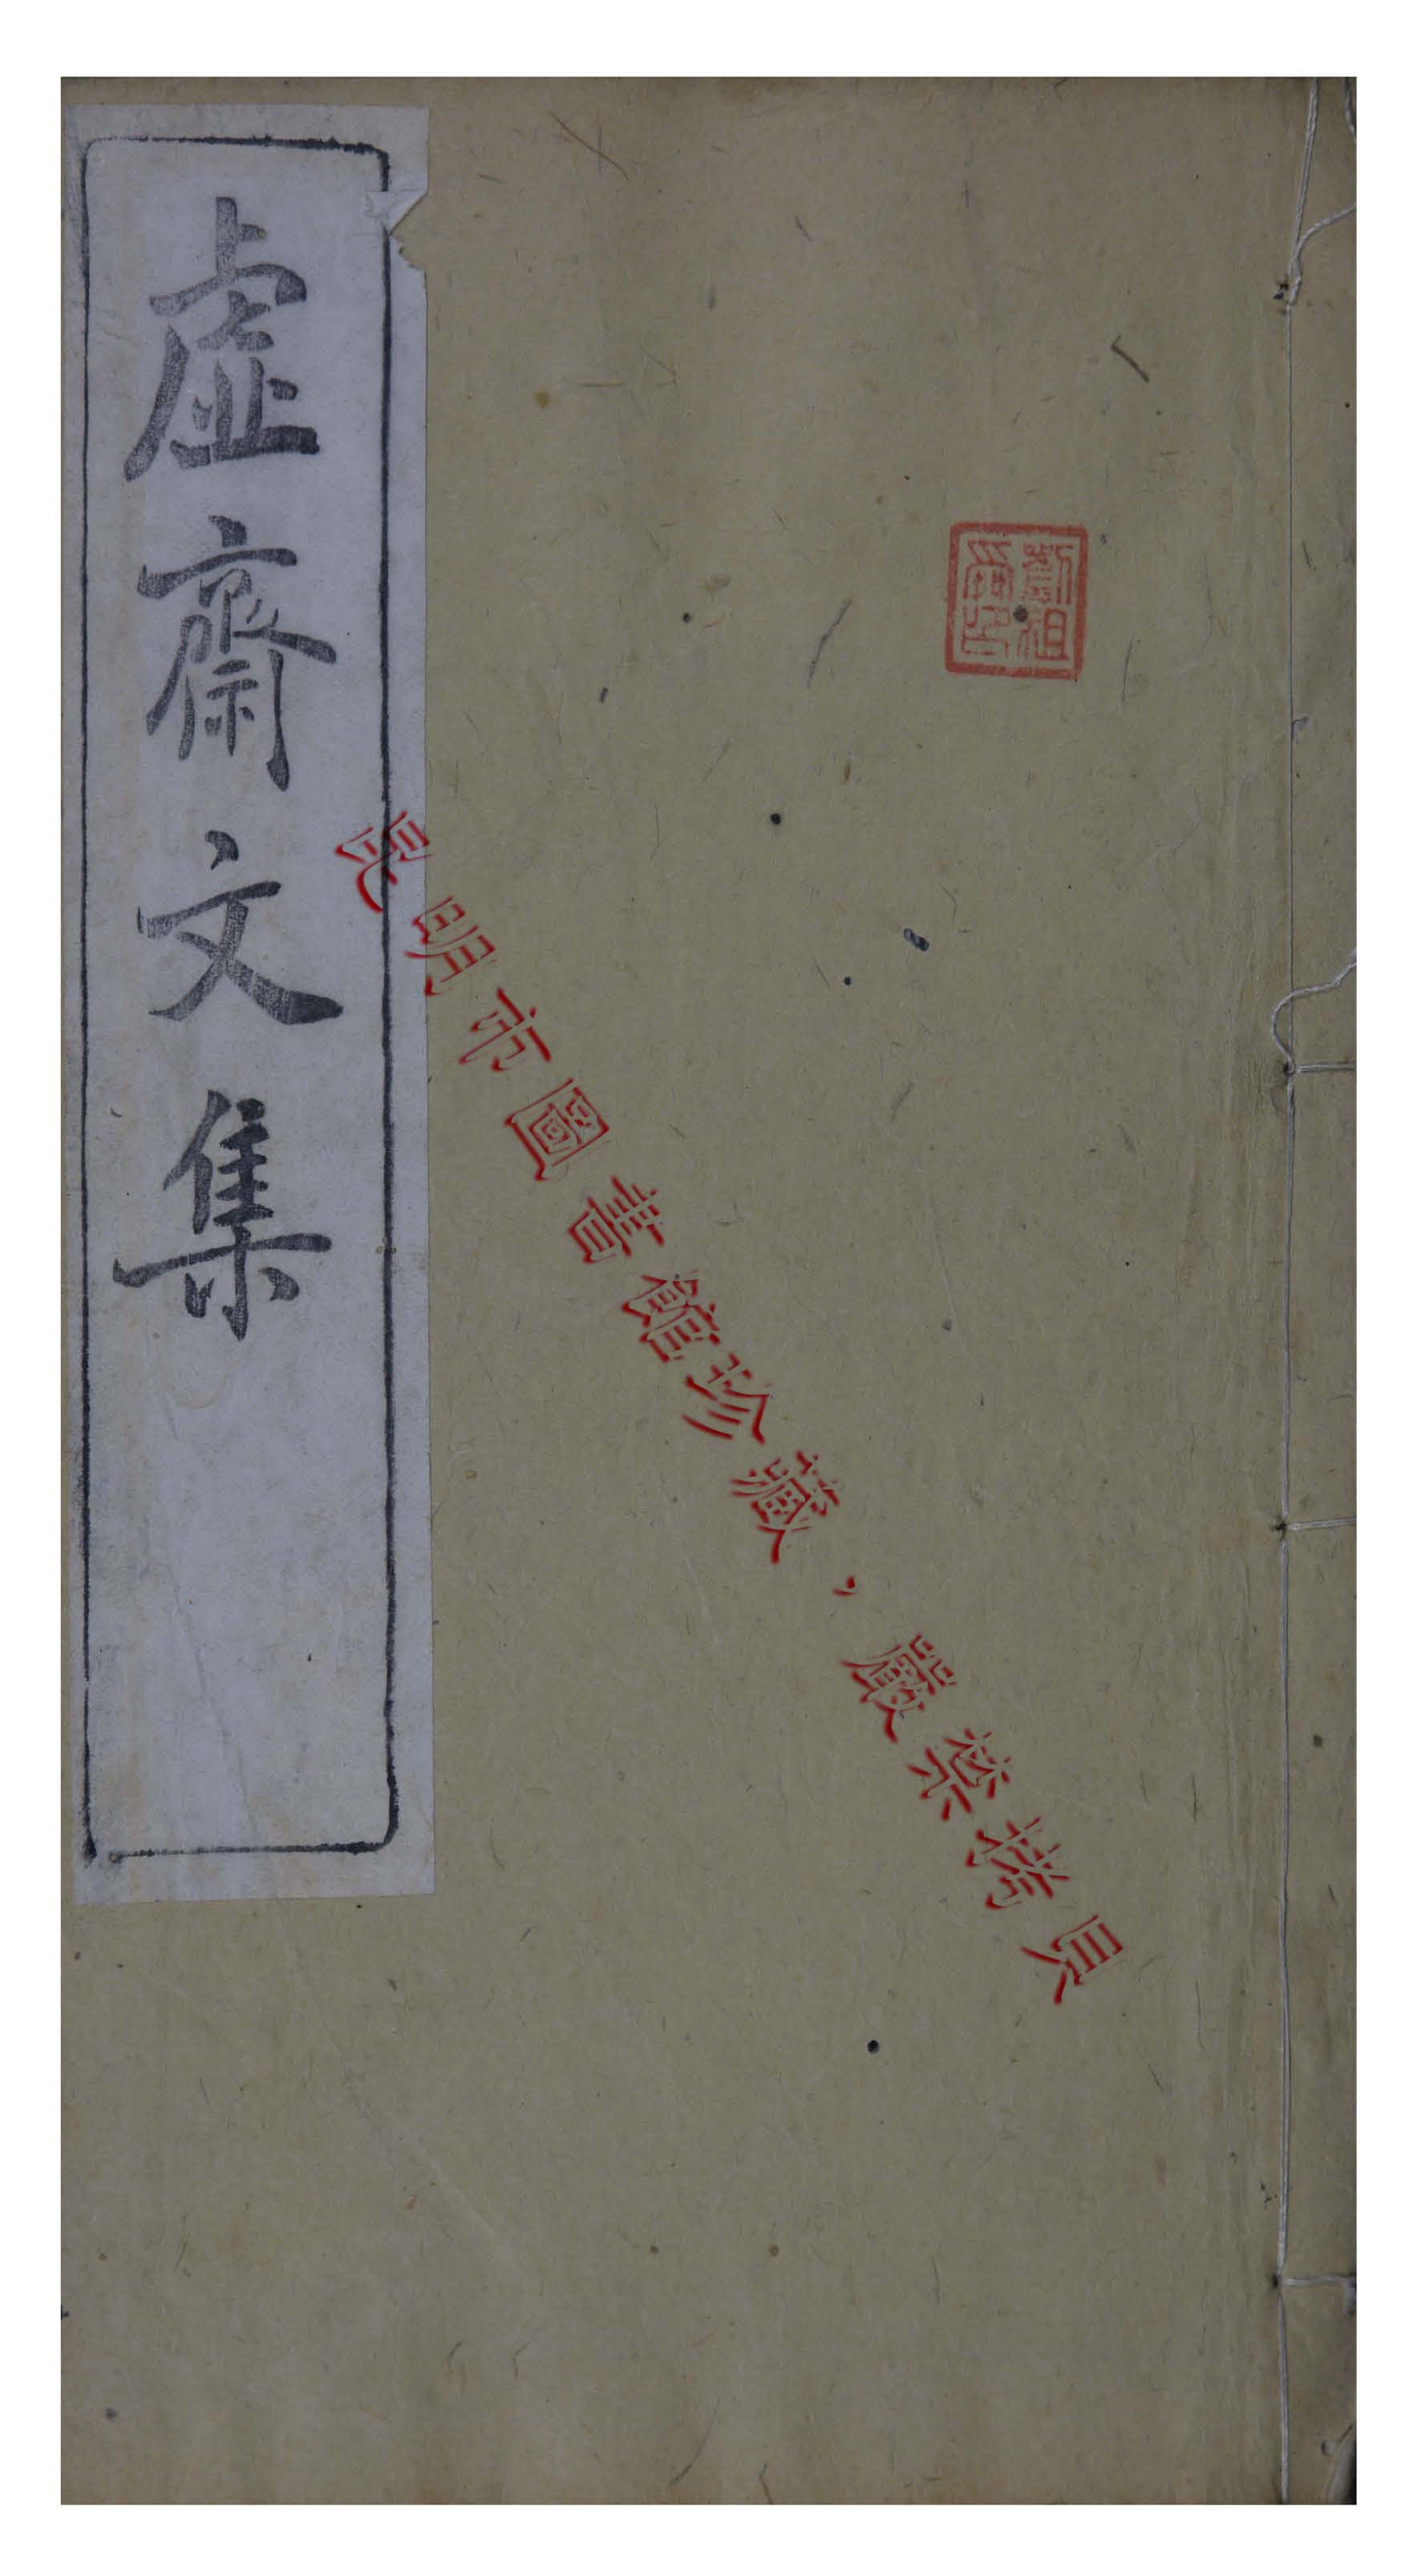 虛齋文集
昆明市圖書館珍藏，嚴禁拷貝